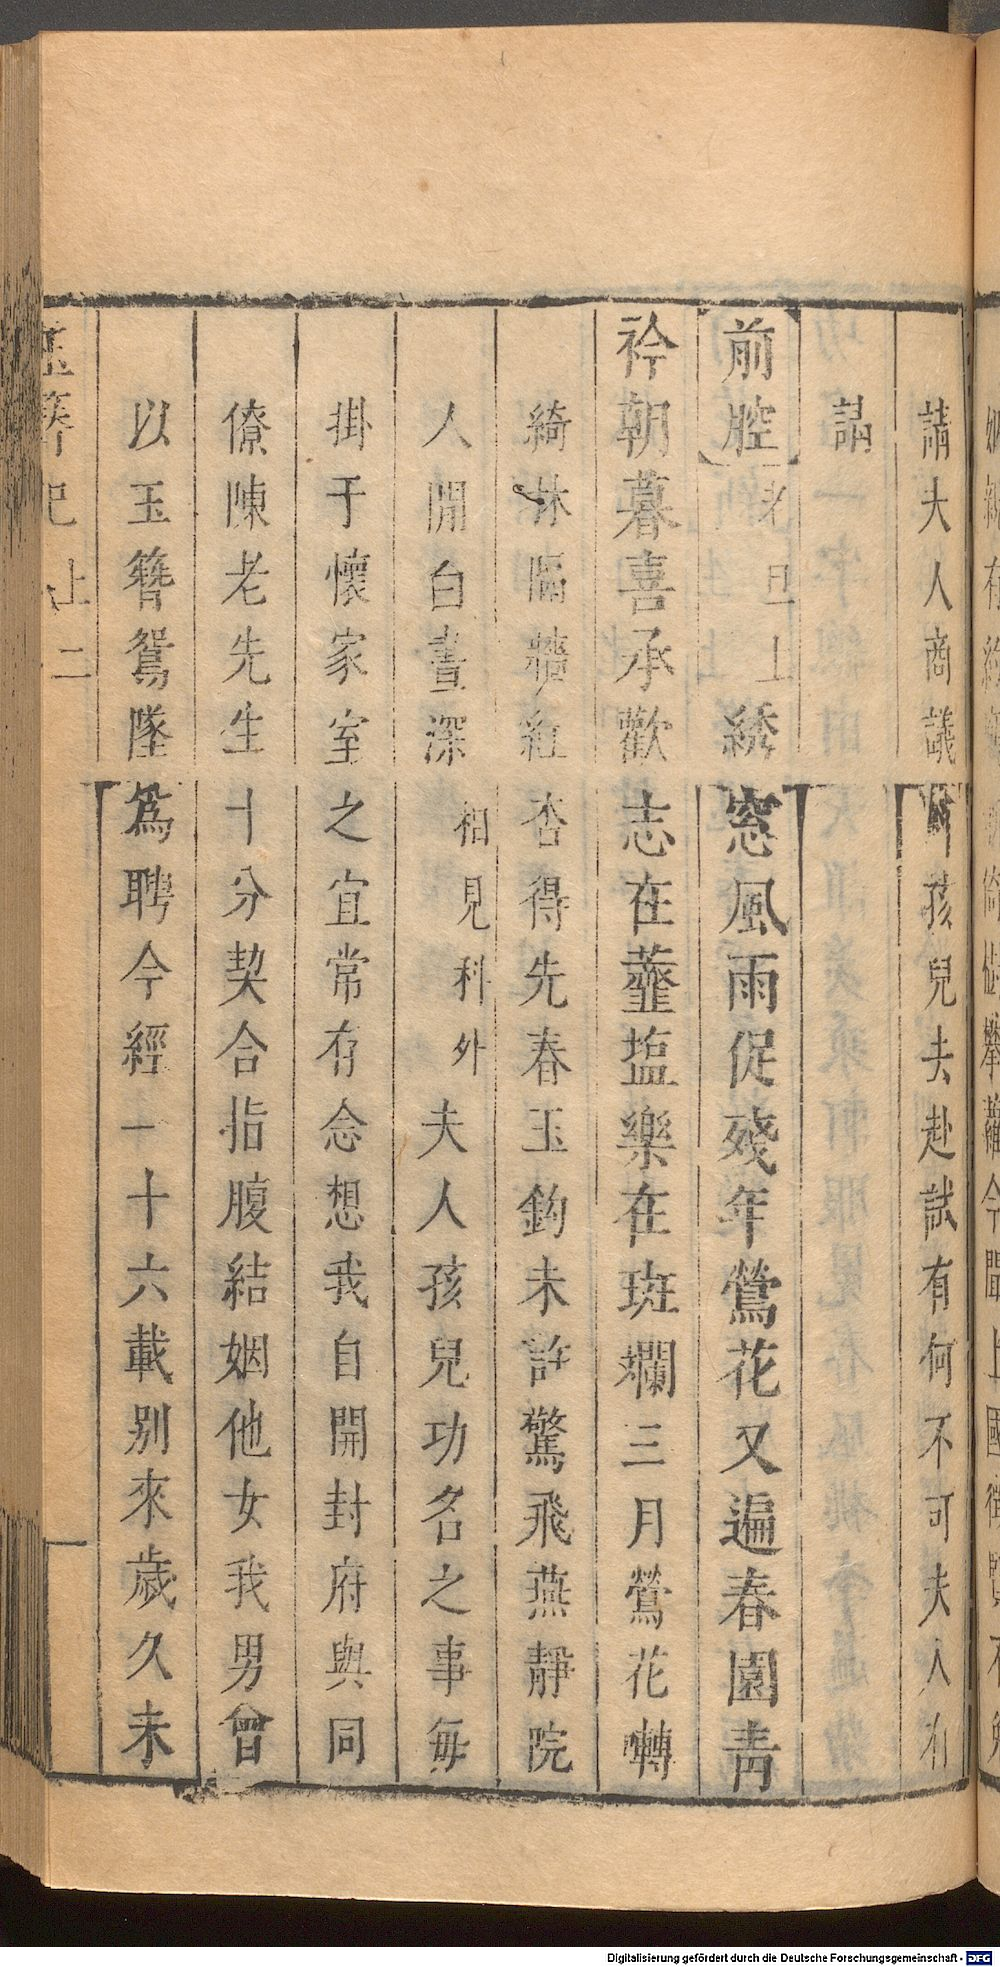 請夫人商議[外]孩兒去赴試有何不可夫人有
請
【前腔】老旦上綉窓風雨促殘年鶯花又遍春園青
衿朝暮喜承歡志在虀塩樂在斑斕三月鶯花囀
綺林隔牆紅杏得先春玉鈎未許驚飛燕靜院
人閒白晝深相見科外夫人孩兒功名之事每
掛于懷家室之宜常存念想我自開封府與同
僚陳老先生十分契合指腹結姻他女我男曾
以玉簪鴛墜爲聘今經一十六載别來歲久未
玉簪記 上 二
Digitalisierung gefördert durch die Deutsche Forschungsgemeinschaft - DFG